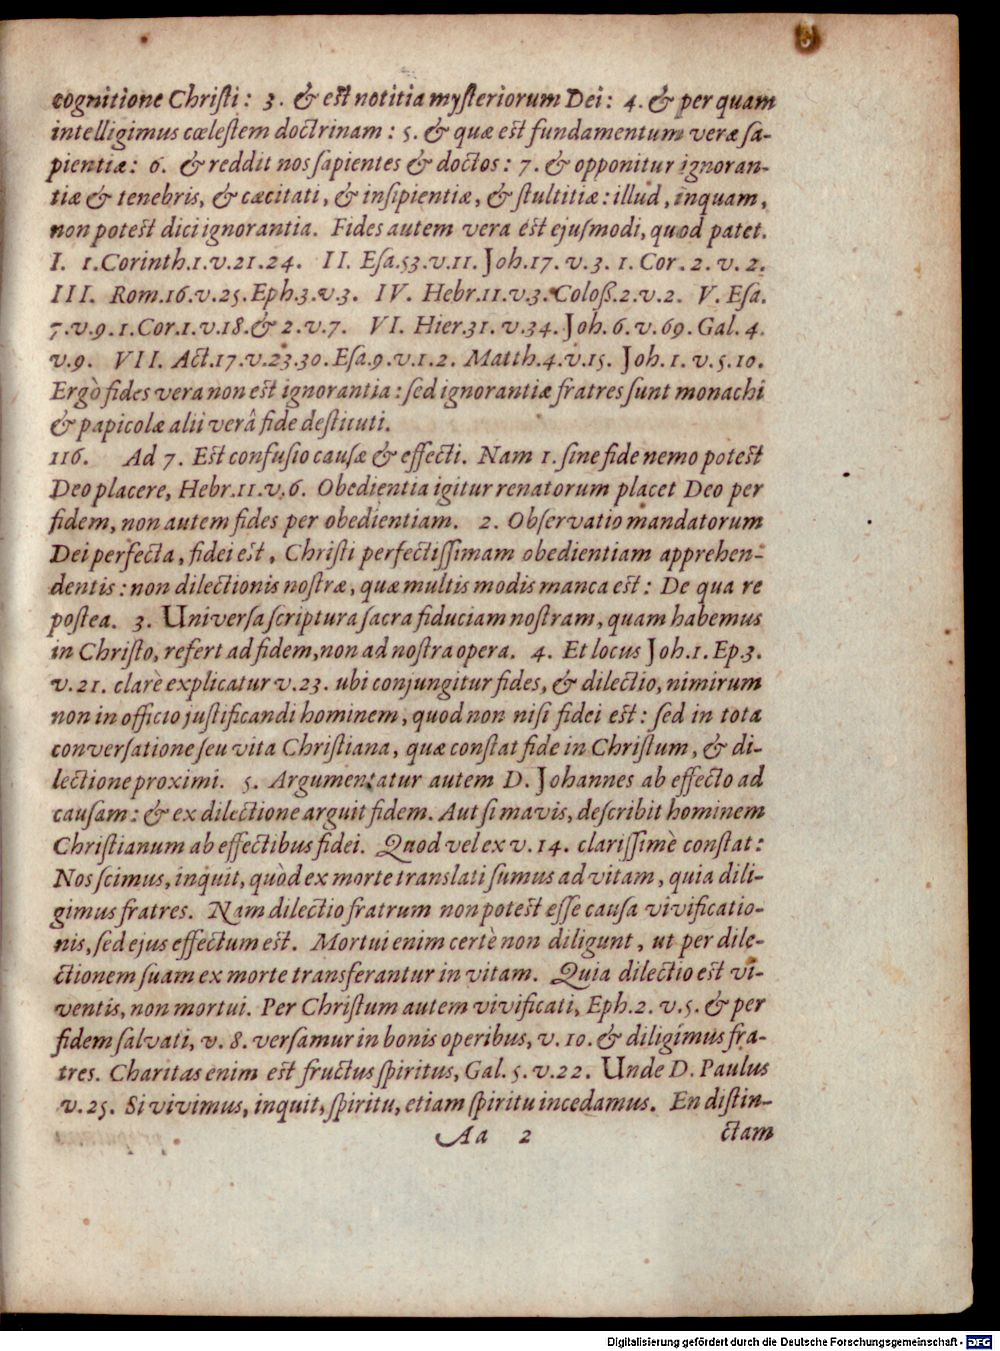 cognitione Christi: 3. & est notitia mysteriorum Dei: 4. & per quam
intelligimus cœlestem doctrinam: 5. & quæ est fundamentum veræ sa-
pientiæ: 6. & reddit nos sapientes & doctos: 7. & opponitur ignoran-
tiæ & tenebris, & cæcitati, & insipientiæ, & stultitiæ: illud, inquam,
non potest dici ignorantia. Fides autem vera est ejusmodi, quod patet.
I. 1. Corinth. 1. v. 21. 24. II. Esa. 53. v. 11. Joh. 17. v. 3. 1. Cor. 2. v. 2.
III. Rom. 16. v. 25. Eph. 3. v. 3. IV. Hebr. 11. v. 3. Coloß. 2. v. 2. V. Esa.
7. v. 9. 1. Cor. 1. v. 18. & 2. v. 7. VI. Hier. 31. v. 34. Joh. 6. v. 69. Gal. 4.
v. 9. VII. Act. 17. v. 23. 30. Esa. 9. v. 1. 2. Matth. 4. v. 15. Joh. 1. v. 5. 10.
Ergò fides vera non est ignorantia: sed ignorantiæ fratres sunt monachi
& papicolæ alii verâ fide destituti.
116. Ad 7. Est confusio causæ & effecti. Nam 1. sine fide nemo potest
Deo placere, Hebr. 11. v. 6. Obedientia igitur renatorum placet Deo per
fidem, non autem fides per obedientiam. 2. Observatio mandatorum
Dei perfecta, fidei est, Christi perfectissimam obedientiam apprehen-
dentis: non dilectionis nostræ, quæ multis modis manca est: De qua re
postea. 3. Universa scriptura sacra fiduciam nostram, quam habemus
in Christo, refert ad fidem, non ad nostra opera. 4. Et locus Joh. 1. Ep. 3.
v. 21. clarè explicatur v. 23. ubi conjungitur fides, & dilectio, nimirum
non in officio justificandi hominem, quod non nisi fidei est: sed in tota
conversatione seu vita Christiana, quæ constat fide in Christum, & di-
lectione proximi. 5. Argumentatur autem D. Johannes ab effecto ad
causam: & ex dilectione arguit fidem. Aut si mavis, describit hominem
Christianum ab effectibus fidei. Quod vel ex v. 14. clarissimè constat:
Nos scimus, inquit, quòd ex morte translati sumus ad vitam, quia dili-
gimus fratres. Nam dilectio fratrum non potest esse causa vivificatio-
nis, sed ejus effectum est. Mortui enim certè non diligunt, ut per dile-
ctionem suam ex morte transferantur in vitam. Quia dilectio est vi-
ventis, non mortui. Per Christum autem vivificati, Eph. 2. v. 5. & per
fidem salvati, v. 8. versamur in bonis operibus, v. 10. & diligimus fra-
tres. Charitas enim est fructus spiritus, Gal. 5. v. 22. Unde D. Paulus
v. 25. Si vivimus, inquit, spiritu, etiam spiritu incedamus. En distin-
Aa 2 ctam
Digitalisierung gefördert durch die Deutsche Forschungsgemeinschaft - DFG